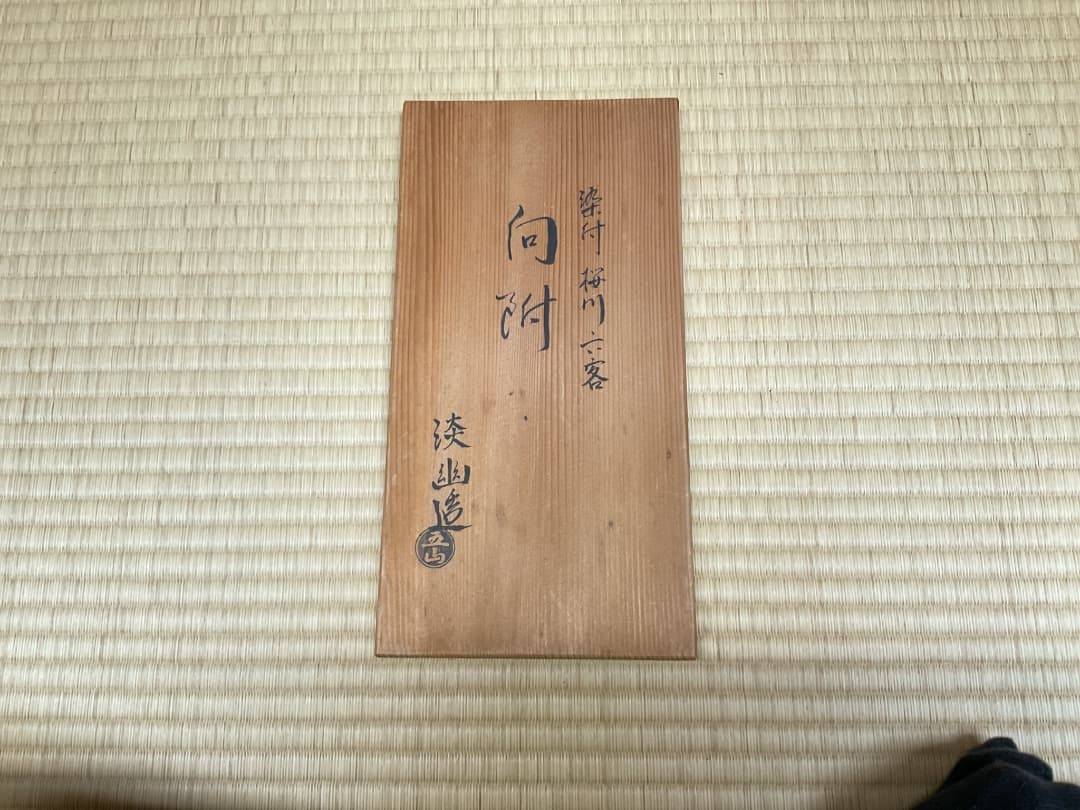 染付 桜川 六客
向附
淡幽造
五山